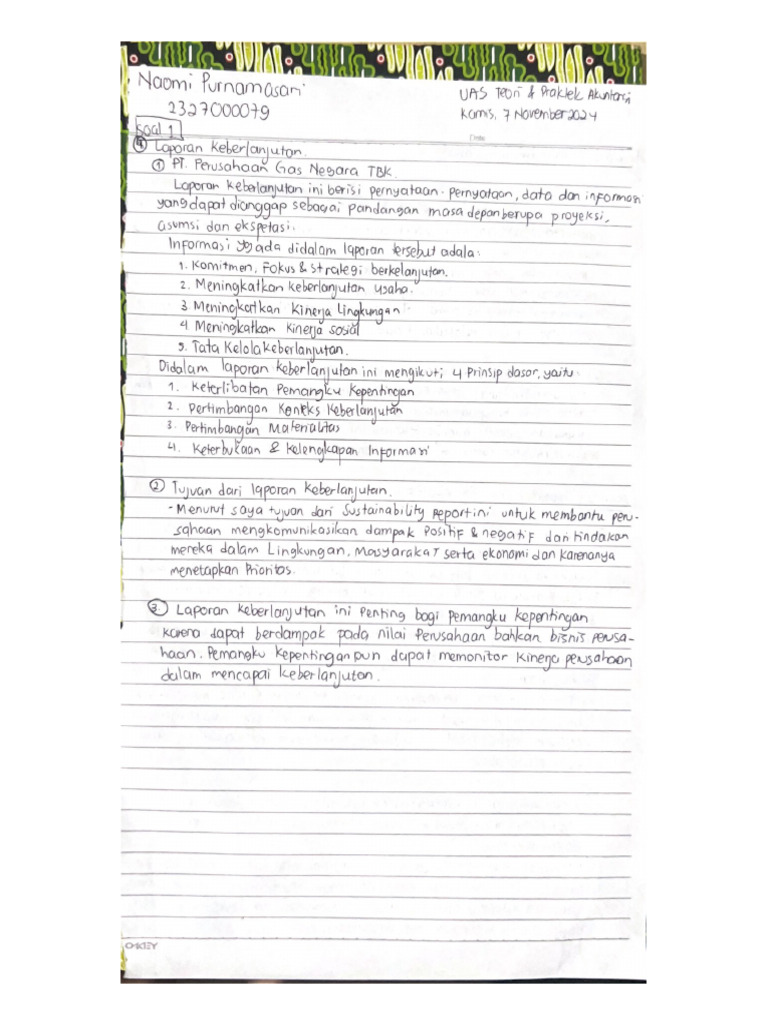 Naomi Purnamasari
2327000079
UAS Teori & Praktek Akuntansi
Kamis, 7 November 2024
Date
Soal 1
④ Laporan Keberlanjutan.
① PT. Perusahaan Gas Negara TBK.
Laporan keberlanjutan ini berisi pernyataan-pernyataan, data dan informasi
yang dapat dianggap sebagai pandangan masa depan berupa proyeksi,
asumsi dan ekspetasi.
Informasi yg ada didalam laporan tersebut adala:
1. Komitmen, Fokus & Strategi berkelanjutan.
2. Meningkatkan keberlanjutan usaha.
3 Meningkatkan Kinerja Lingkungan
4 Meningkatkan Kinerja sosial
5. Tata Kelola Keberlanjutan.
Didalam laporan keberlanjutan ini mengikuti; 4 Prinsip dasar, yaitu
1. Keterlibatan Pemangku Kepentingan
2. Pertimbangan Konteks Keberlanjutan
3. Pertimbangan Materialitas
4. Keterbukaan & Kelengkapan Informasi
② Tujuan dari laporan Keberlanjutan.
- Menurut saya tujuan dari Sustainability Report ini untuk membantu peru-
sahaan mengkomunikasikan dampak Positif & negatif dari tindakan
mereka dalam Lingkungan, Masyarakat serta ekonomi dan karenanya
menetapkan Prioritas.
③ Laporan keberlanjutan ini Penting bagi Pemangku kepentingan
karena dapat berdampak pada nilai Perusahaan bahkan bisnis perusa-
haan. Pemangku Kepentingan pun dapat memonitor Kinerja perusahaan
dalam mencapai keberlanjutan.